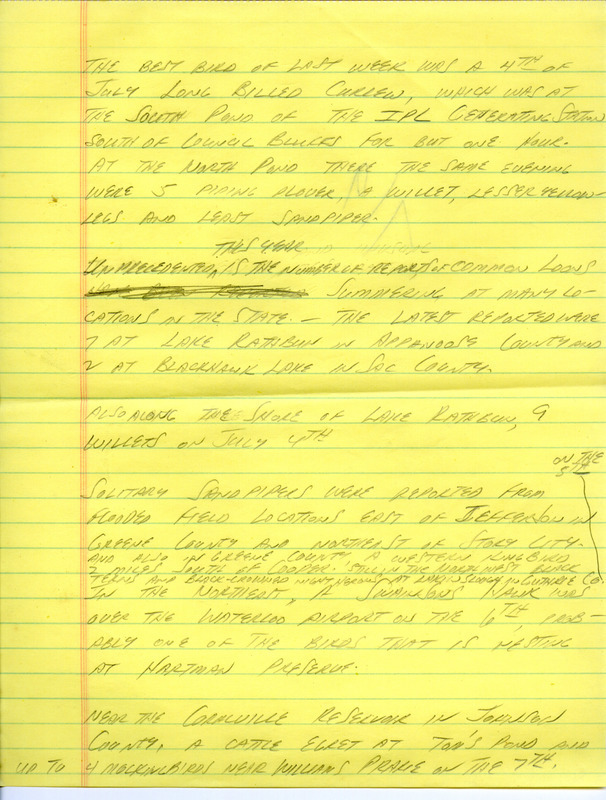 THE BEST BIRD OF LAST WEEK WAS A 4TH OF
JULY LONG BILLED CURLEW, WHICH WAS AT
THE SOUTH POND OF THE IPL GENERATING STATION
SOUTH OF COUNCIL BLUFFS FOR BUT ONE HOUR.
AT THE NORTH POND THERE THE SAME EVENING
WERE 5 PIPING PLOVER, A WILLET, LESSER YELLOW-
LEGS AND LEAST SANDPIPER.
THIS YEAR
UNPRECEDENTED, IS THE NUMBER OF REPORTS OF COMMON LOONS
SUMMERING AT MANY LO-
CATIONS IN THE STATE. - THE LATEST REPORTED WERE
7 AT LAKE RATHBUN IN APPANOOSE COUNTY AND
2 AT BLACKHAWK LAKE IN SAC COUNTY.
ALSO ALONG THE SHORE OF LAKE RATHBUN, 9
WILLETS ON JULY 4TH
ON THE
5TH
SOLITARY SANDPIPERS WERE REPORTED FROM
FLOODED FIELD LOCATIONS EAST OF JEFFERSON IN
GREENE COUNTY AND NORTHEAST OF STORY CITY.
AND ALSO IN GREENE COUNTY A WESTERN KINGBIRD
2 MILES SOUTH OF COOPER. STILL IN THE NORTHWEST BLACK
TERNS AND BLACK-CROWNED NIGHT HERONS AT LAKIN SLOUGH IN GUTHRIE CO.
IN THE NORTHEAST, A SWAINSONS HAWK WAS
OVER THE WATERLOO AIRPORT ON THE 6TH, PROB-
ABLY ONE OF THE BIRDS THAT IS NESTING
AT HARTMAN PRESERVE.
NEAR THE CORALVILLE RESERVOIR IN JOHNSON
COUNTY, A CATTLE EGRET AT TOM'S POND AND
UP TO 4 MOCKINGBIRDS NEAR WILLIAMS PRAIRIE ON THE 7TH.